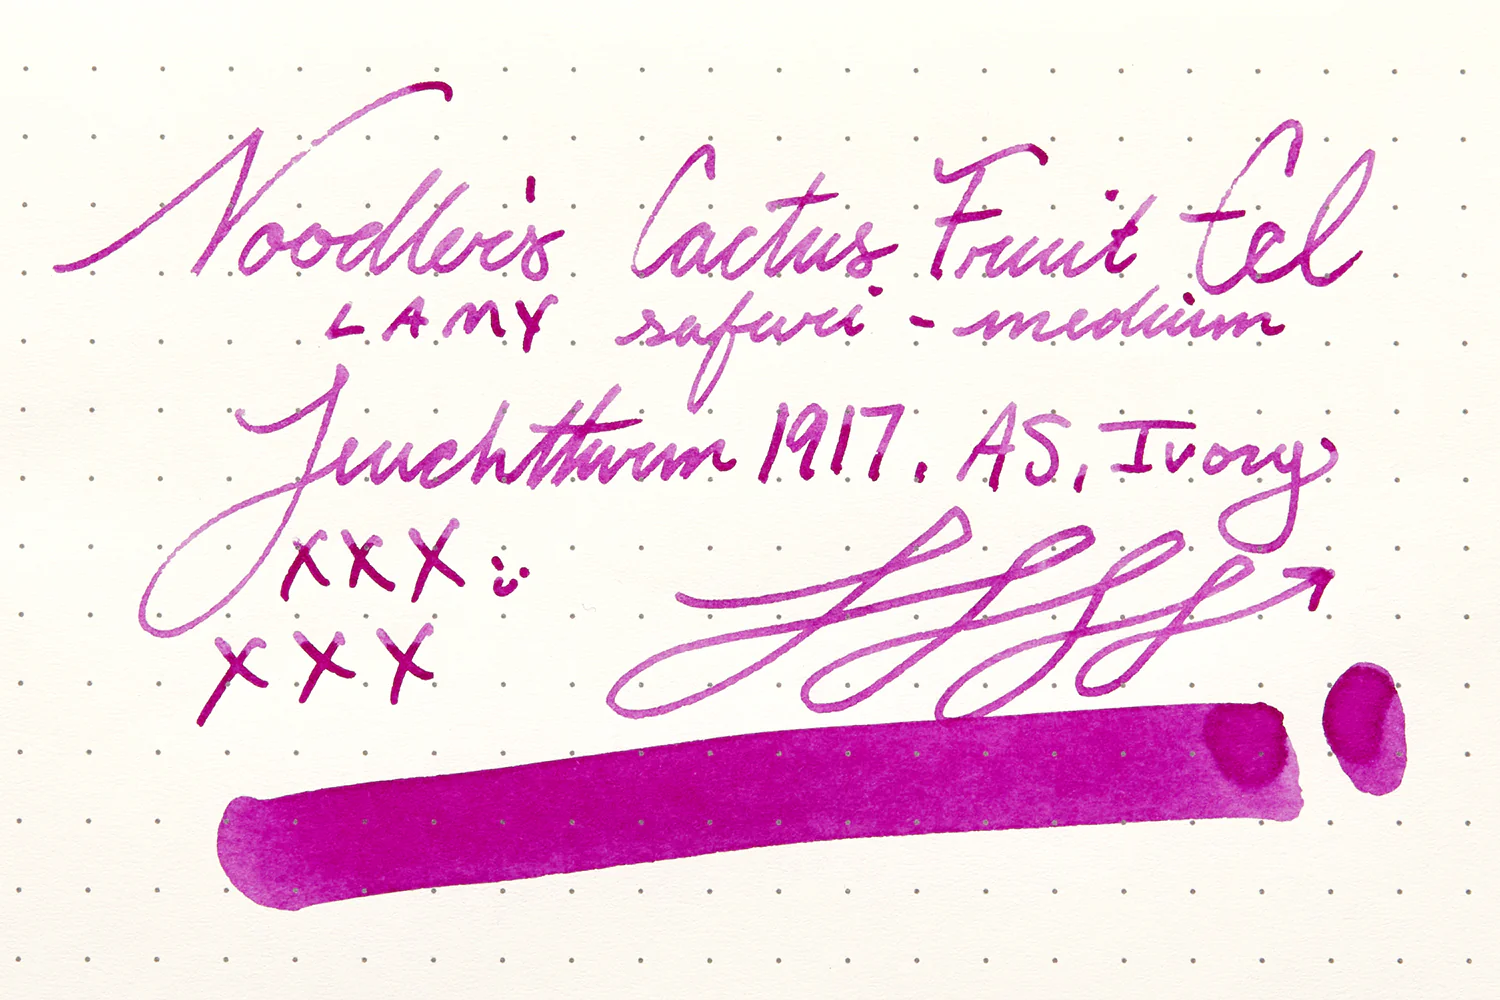 Noodler's Cactus Fruit Eel
LAMY safari - medium
Leuchtturm 1917, A5, Ivory
xxx
xxx